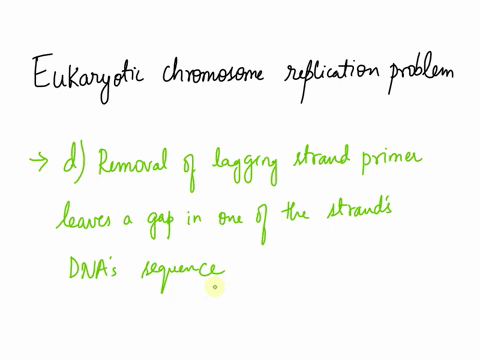 Eukaryotic chromosome replication problem
→ d) Removal of lagging strand primer
leaves a gap in one of the strand's
DNA's sequence